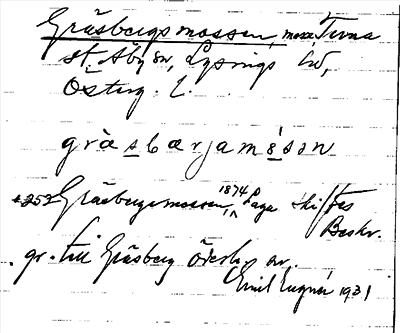 Gräsbergsmossen, mosse, Terna
St. Åby sn, Lysings hd,
Österg. l.
gràsbærjamósən
Gräsbergsmossen, 1874 Laga skiftes
Beskr.
gr. till Gräsberg
Emil Eugnér 1931